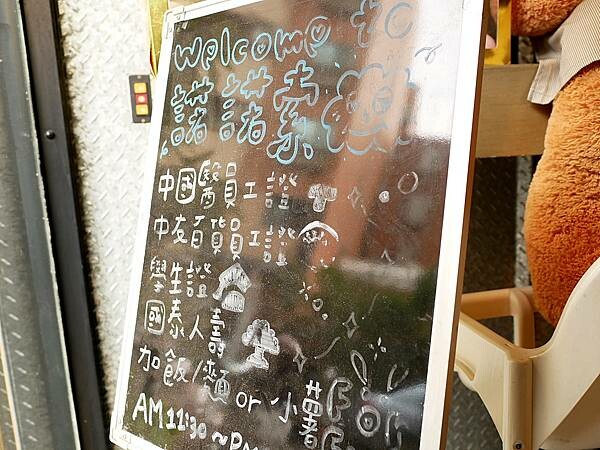 Welcome to
諾諾素
中國醫員工證
中友百貨員工證
學生證
國泰人壽
加飯/麵 or 小薯
AM 11:30 ~ PM